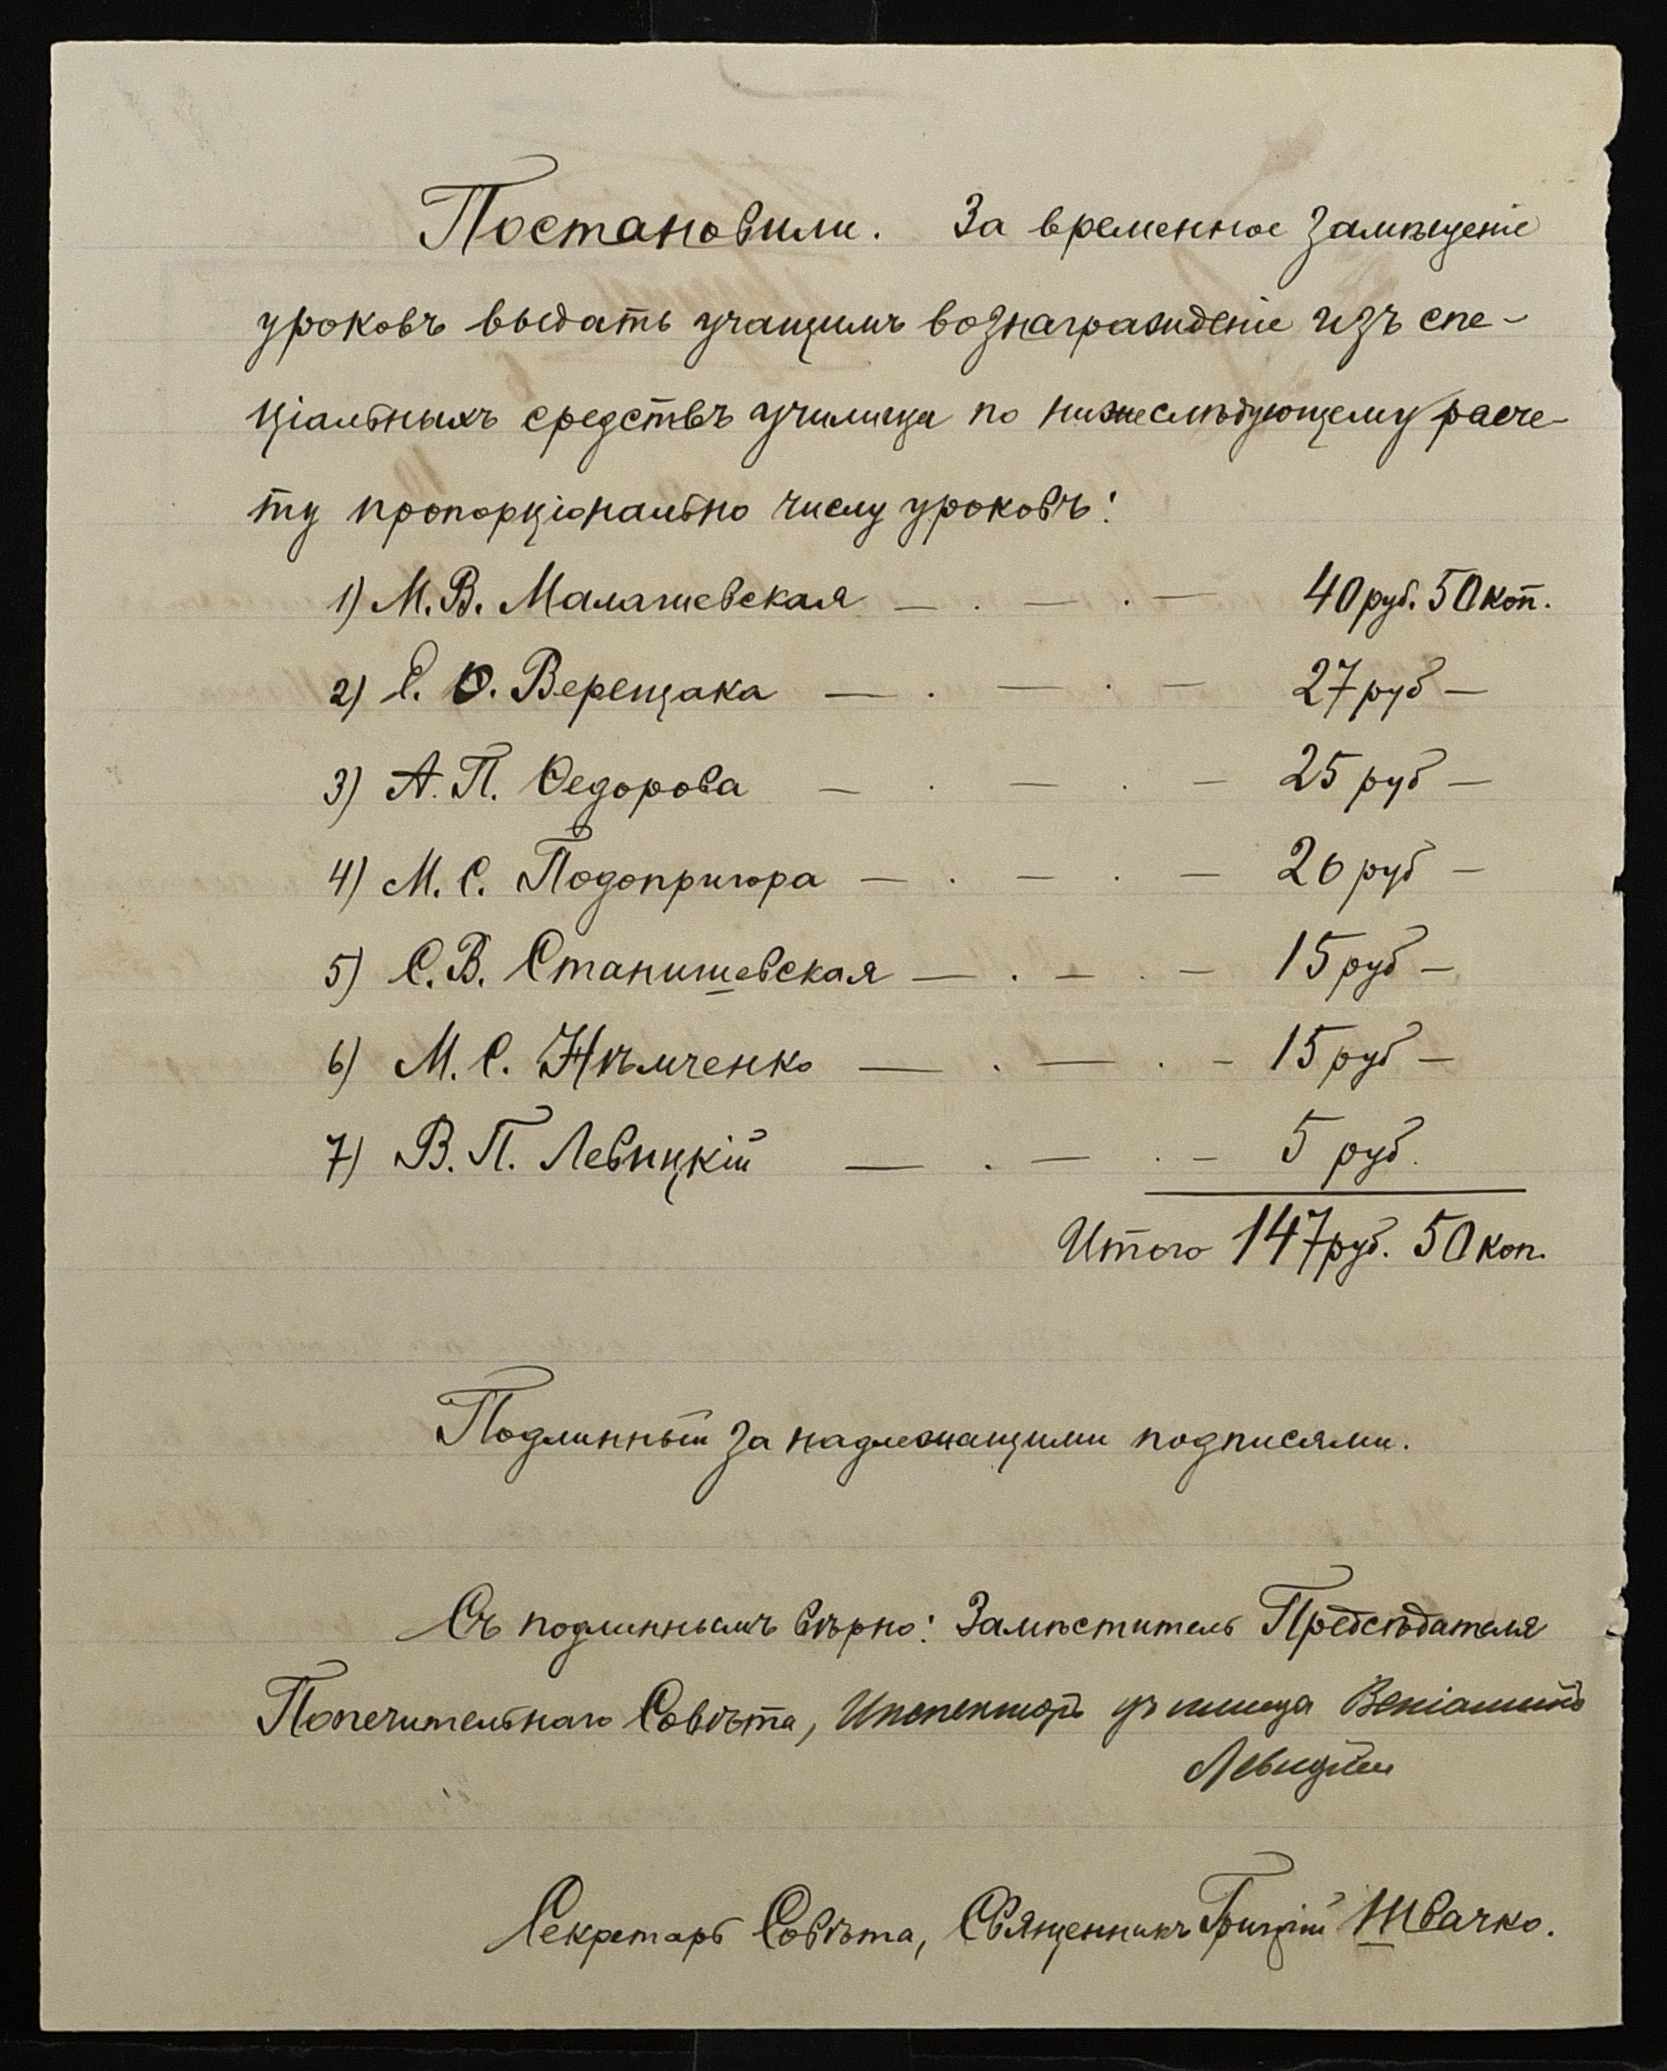 Постановили. За временное замѣщеніе
уроковъ выдать учащимъ вознагражденіе изъ спе-
ціальныхъ средствъ училища по нижеслѣдующему расче-
ту пропорціонально числу уроковъ:
1) М. В. Малашевская — . — . — 40 руб. 50 коп.
2) Е. Ѳ. Верещака — . — . — 27 руб —
3) А. П. Ѳедорова — . — . — 25 руб —
4) М. С. Подопригора — . — . — 20 руб —
5) С. В. Станишевская — . — . — 15 руб —
6) М. С. Нѣмченко — . — . — 15 руб —
7) В. П. Левицкій — . — . — 5 руб.
Итого 147 руб. 50 коп.
Подлинный за надлежащими подписями.
Съ подлиннымъ вѣрно: Замѣститель Предсѣдателя
Попечительнаго Совѣта, Инспекторъ училища Веніаминъ
Левицкій
Секретарь Совѣта, Священникъ Швачко.